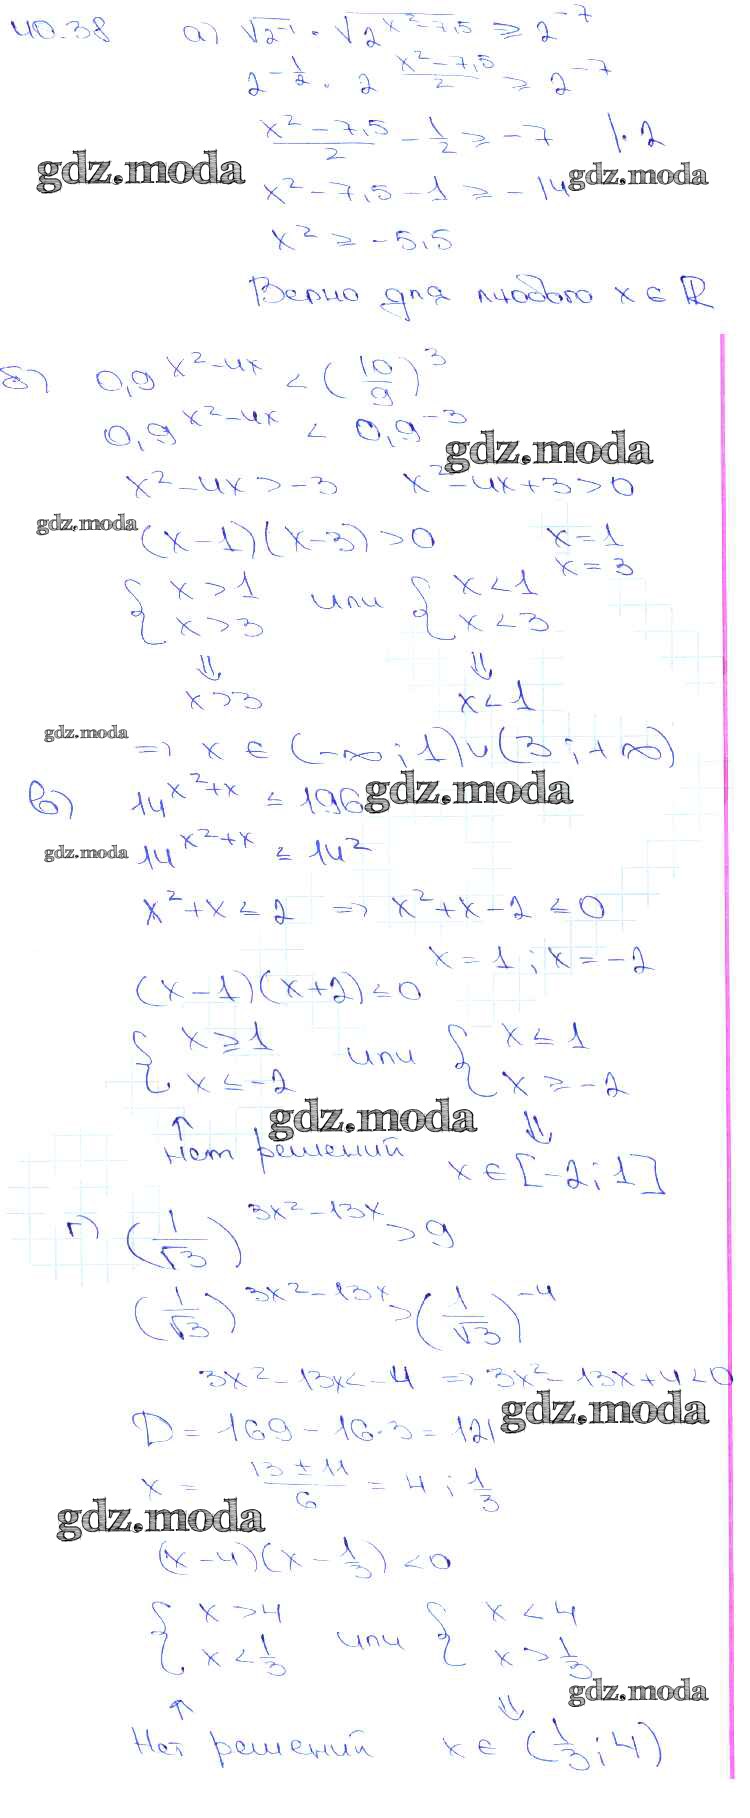 40.38 а) √2⁻¹ · √2^(x²-7,5) ≥ 2⁻⁷
2^(-1/2) · 2^((x²-7,5)/2) ≥ 2⁻⁷
(x²-7,5)/2 - 1/2 ≥ -7 |·2
gdz.moda
gdz.moda
x²-7,5-1 ≥ -14
x² ≥ -5,5
Верно для любого x ∈ ℝ
б) 0,9^(x²-4x) < (10/9)³
0,9^(x²-4x) < 0,9⁻³
gdz.moda
x²-4x > -3 x²-4x+3 > 0
gdz.moda
(x-1)(x-3) > 0 x = 1
x = 3
{ x > 1 или { x < 1
x > 3 x < 3
⇓ ⇓
x > 3 x < 1
gdz.moda
⇒ x ∈ (-∞; 1) ∪ (3; +∞)
в) 14^(x²+x) ≤ 196
gdz.moda
gdz.moda
14^(x²+x) ≤ 14²
x²+x ≤ 2 ⇒ x²+x-2 ≤ 0
x = 1; x = -2
(x-1)(x+2) ≤ 0
{ x ≥ 1 или { x ≤ 1
x ≤ -2 x ≥ -2
gdz.moda
↑ ⇓
Нет решений x ∈ [-2; 1]
г) (1/√3)^(3x²-13x) > 9
(1/√3)^(3x²-13x) > (1/√3)⁻⁴
3x²-13x < -4 ⇒ 3x²-13x+4 < 0
gdz.moda
D = 169 - 16·3 = 121
x = (13 ± 11)/6 = 4; 1/3
gdz.moda
(x-4)(x-1/3) < 0
{ x > 4 или { x < 4
x < 1/3 x > 1/3
gdz.moda
↑ ⇓
Нет решений x ∈ (1/3; 4)